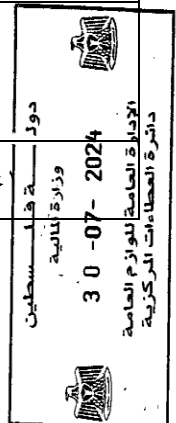 دولـــــة فلـــــسطين
وزارة المالية
3 0 -07- 2024
الإدارة العامة للوازم العامة
دائرة العطاءات المركزية